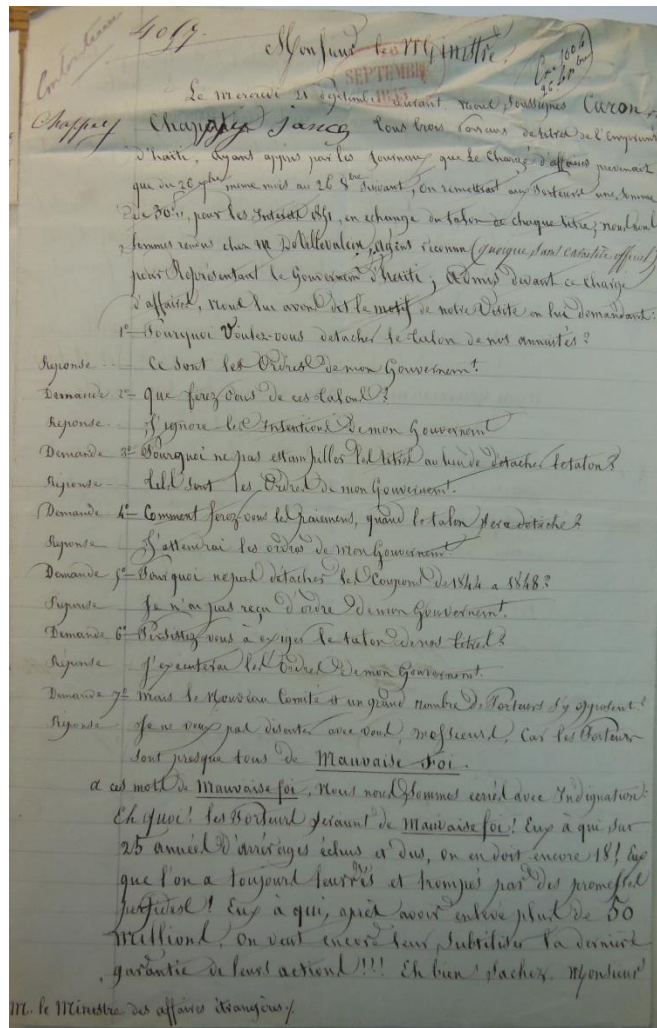 Contentieux
4057
Monsieur le Ministre,
SEPTEMBRE
Le mercredi 21 Septembre Courant, Nous, Soussignés Caron,
Chappey Jancq tous trois Porteurs de titres de l'Emprunt
d'haïti, Ayant appris par les Journaux que le Chargé d'affaires prévenait
que du 26 7bre même mois au 26 8bre Suivant, On remettrait aux Porteurs une Somme
de 30 f., pour les Intérêts 1851, en échange du talon de chaque titre; nous nous
Sommes rendus chez Mr Agent reconnu (quoique Sans Caractère officiel)
pour Représentant le Gouvernemt d'haïti; Admis devant ce Chargé
d'affaires, Nous lui avons dit le motif de notre Visite en lui demandant:
1º Pourquoi Voulez-vous détacher le talon de nos annuités?
Réponse Ce sont les Ordres de mon Gouvernemt.
Demande 2º Que ferez vous de ces talons?
Réponse J'ignore les Intentions de mon Gouvernemt
Demande 3º Pourquoi ne pas estampiller les titres au lieu de détacher le talon?
Réponse tels sont les Ordres de mon Gouvernemt.
Demande 4º Comment ferez-vous les Paiemens, quand le talon sera détaché?
Réponse J'attendrai les ordres de mon Gouvernemt.
Demande 5º Pourquoi ne pas détacher les Coupons de 1844 a 1848?
Réponse Je n'ai pas reçu d'ordre de mon Gouvernemt.
Demande 6º Persistez vous à exiger le talon de nos titres?
Réponse J'exécuterai les Ordres de mon Gouvernemt.
Demande 7º Mais le Nouveau Comité et un grand Nombre de Porteurs s'y opposent?
Réponse Je ne veux pas discuter avec vous, Messieurs, Car les Porteurs
sont presque tous de Mauvaise Foi.
a ces mots de Mauvaise foi, Nous nous Sommes ecriés avec Indignation:
Eh quoi! les Porteurs seraient de Mauvaise foi! Eux à qui sur
25 années d'arrérages échus et dus, on en doit encore 18! Eux
que l'on a toujours leurrés et trompés par des promesses
perfides! Eux à qui, après avoir enlevé plus de 50
Millions, On veut encore leur Subtiliser la dernière
garantie de leurs actions!!! Eh bien! sachez, Monsieur
M. le Ministre des affaires étrangères./.